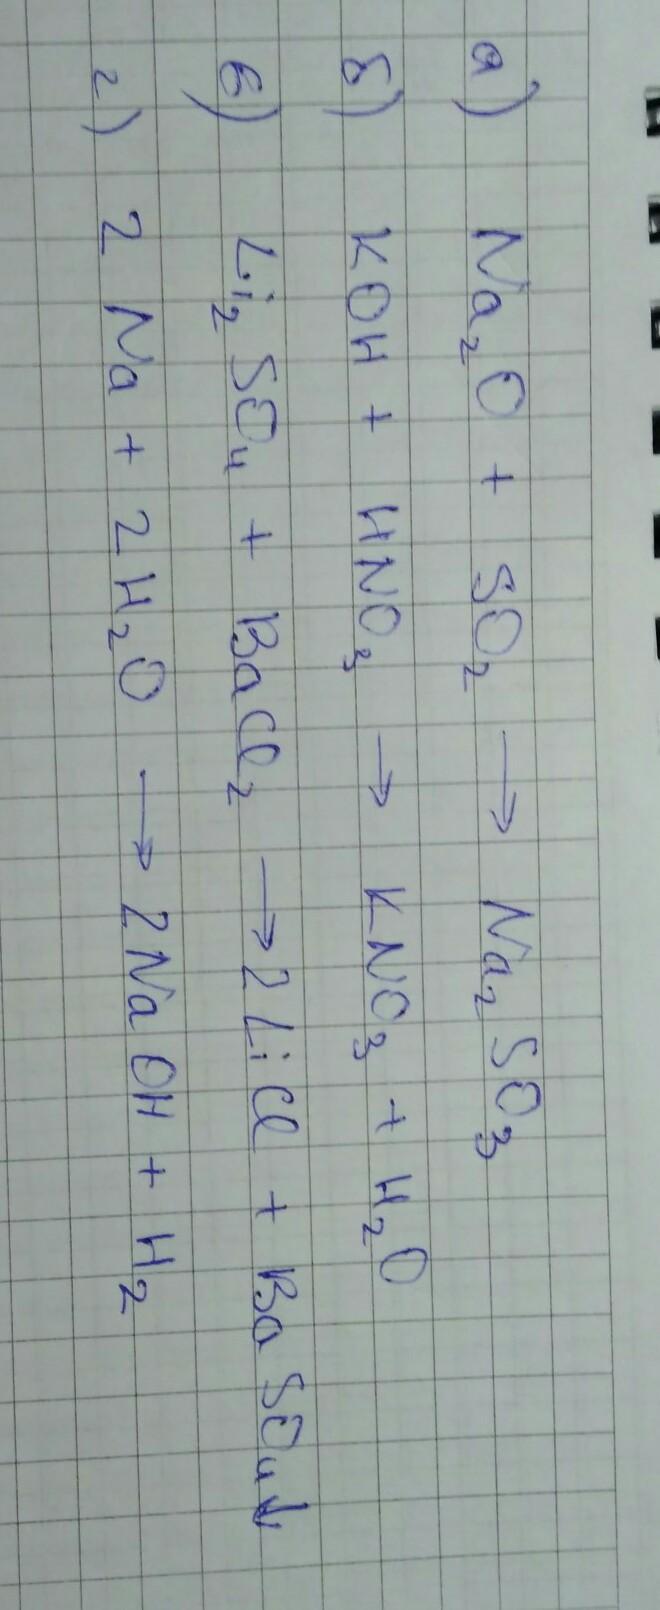 а) Na₂O + SO₂ → Na₂SO₃
б) KOH + HNO₃ → KNO₃ + H₂O
в) Li₂SO₄ + BaCl₂ → 2LiCl + BaSO₄↓
г) 2Na + 2H₂O → 2NaOH + H₂